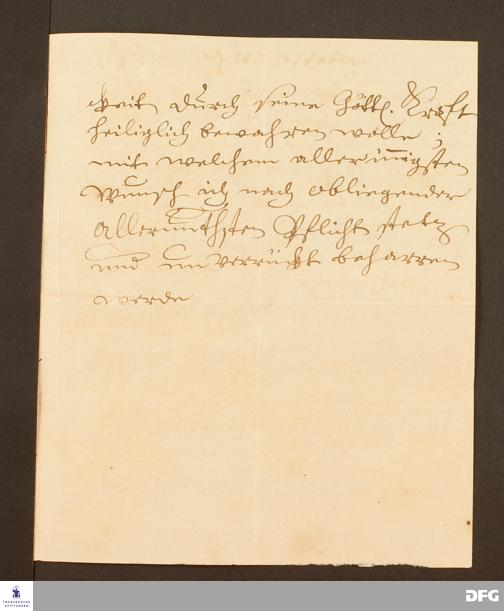 keit durch seine Göttl. Krafft
heiliglich bewahren wolle;
mit welchem allerinnigsten
Wunsch ich nach obliegender
allerunthgsten Pflicht stets
und unverrückt beharren
werde
FRANCKESCHE
STIFTUNGEN
DFG